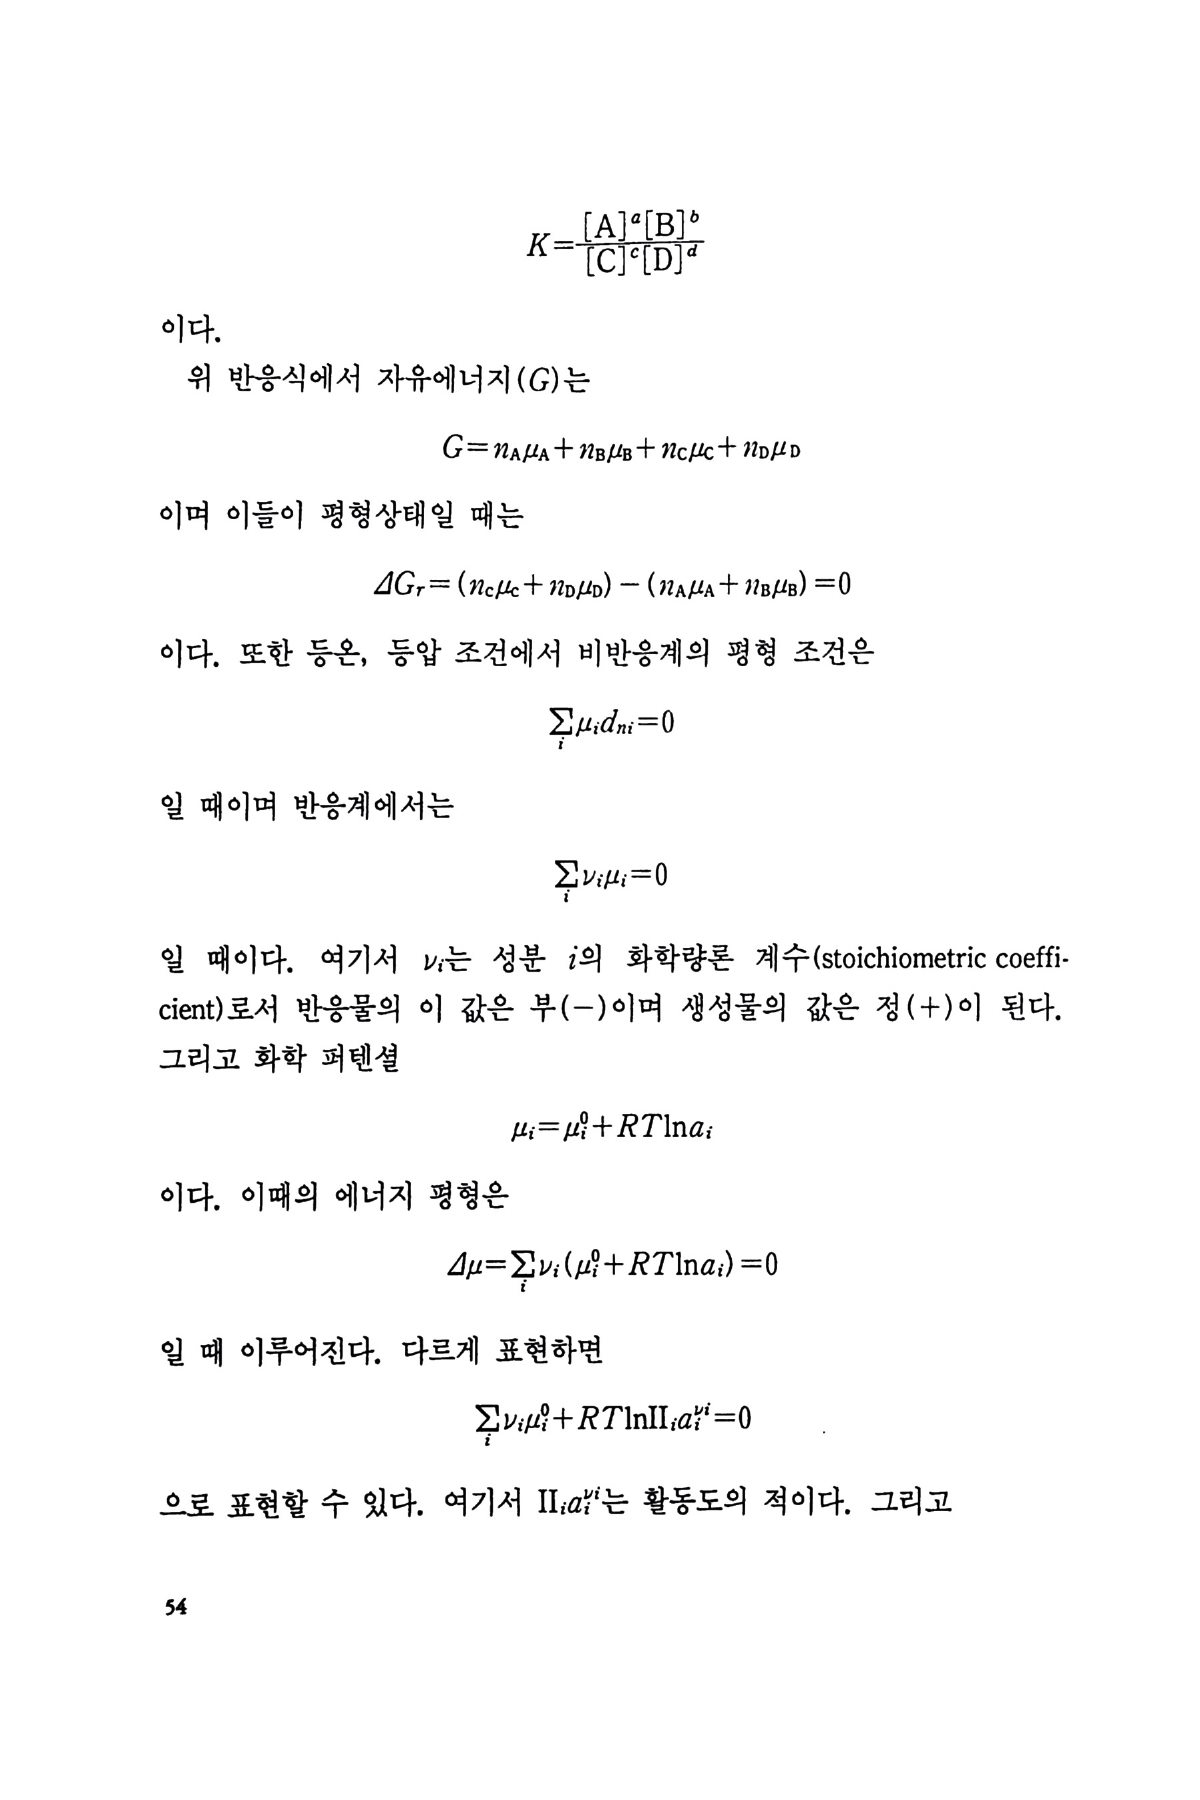 K=[A]ᵃ[B]ᵇ/[C]ᶜ[D]ᵈ
이다.
위 반응식에서 자유에너지(G)는
G=n_Aμ_A+n_Bμ_B+n_Cμ_C+n_Dμ_D
이며 이들이 평형상태일 때는
ΔG_r=(n_Cμ_C+n_Dμ_D)−(n_Aμ_A+n_Bμ_B)=0
이다. 또한 등온, 등압 조건에서 비반응계의 평형 조건은
∑_i μ_i d_{ni}=0
일 때이며 반응계에서는
∑_i ν_i μ_i=0
일 때이다. 여기서 ν_i는 성분 i의 화학량론 계수(stoichiometric coeffi-
cient)로서 반응물의 이 값은 부(−)이며 생성물의 값은 정(+)이 된다.
그리고 화학 퍼텐셜
μ_i=μ_i^0+RTlna_i
이다. 이때의 에너지 평형은
Δμ=∑_i ν_i(μ_i^0+RTlna_i)=0
일 때 이루어진다. 다르게 표현하면
∑_i ν_i μ_i^0+RTlnΠ_i a_i^{νi}=0
으로 표현할 수 있다. 여기서 Π_i a_i^{νi}는 활동도의 적이다. 그리고
54